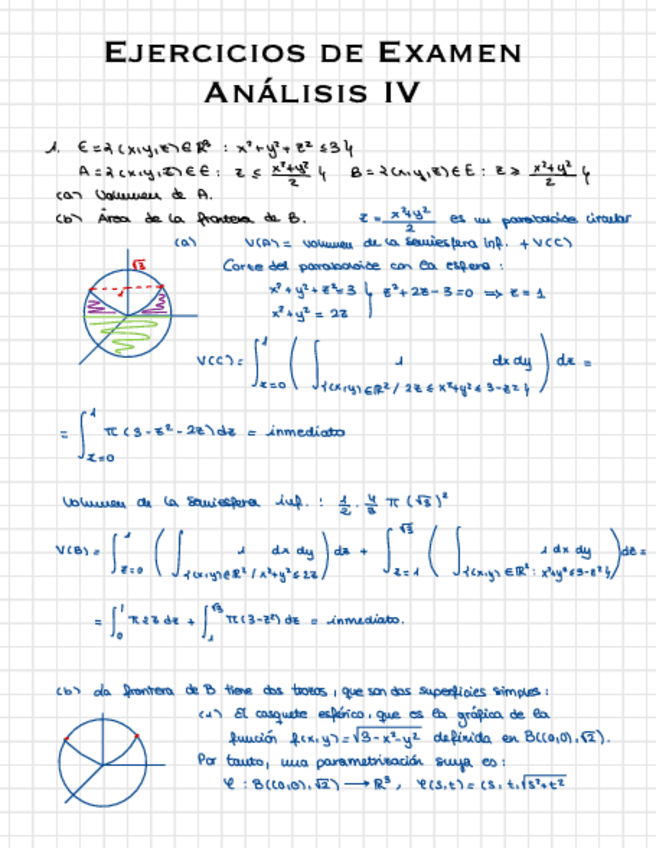 EJERCICIOS DE EXAMEN
ANÁLISIS IV
1. E={(x,y,z)∈ℝ³ : x²+y²+z²≤3}
A={(x,y,z)∈E : z ≤ (x²+y²)/2} B={(x,y,z)∈E : z ≥ (x²+y²)/2}
(a) Volumen de A.
(b) Área de la frontera de B. z = (x²+y²)/2 es un paraboloide circular
(a) V(A) = volumen de la semiesfera inf. + V(C)
√3
1
Corte del paraboloide con la esfera :
x²+y²+z²=3 } z²+2z-3=0 ⇒ z=1
x²+y² = 2z
V(C) = ∫_{z=0}^{1} ( ∫_{{(x,y)∈ℝ² / 2z≤x²+y²≤3-z²}} 1 dx dy ) dz =
= ∫_{z=0}^{1} π(3-z²-2z)dz = inmediato
Volumen de la semiesfera inf. : 1/2 · 4/3 π (√3)²
V(B) = ∫_{z=0}^{1} ( ∫_{{(x,y)∈ℝ² / x²+y²≤2z}} 1 dx dy ) dz + ∫_{z=1}^{√3} ( ∫_{{(x,y)∈ℝ² : x²+y²≤3-z²}} 1 dx dy ) dz =
= ∫_0^1 π2z dz + ∫_1^{√3} π(3-z²) dz = inmediato.
(b) La frontera de B tiene dos trozos, que son dos superficies simples :
(1) El casquete esférico, que es la gráfica de la
función f(x,y)=√(3-x²-y²) definida en B((0,0),√2).
Por tanto, una parametrización suya es :
φ : B((0,0),√2) → ℝ³, φ(s,t) = (s,t,√(s²+t²)